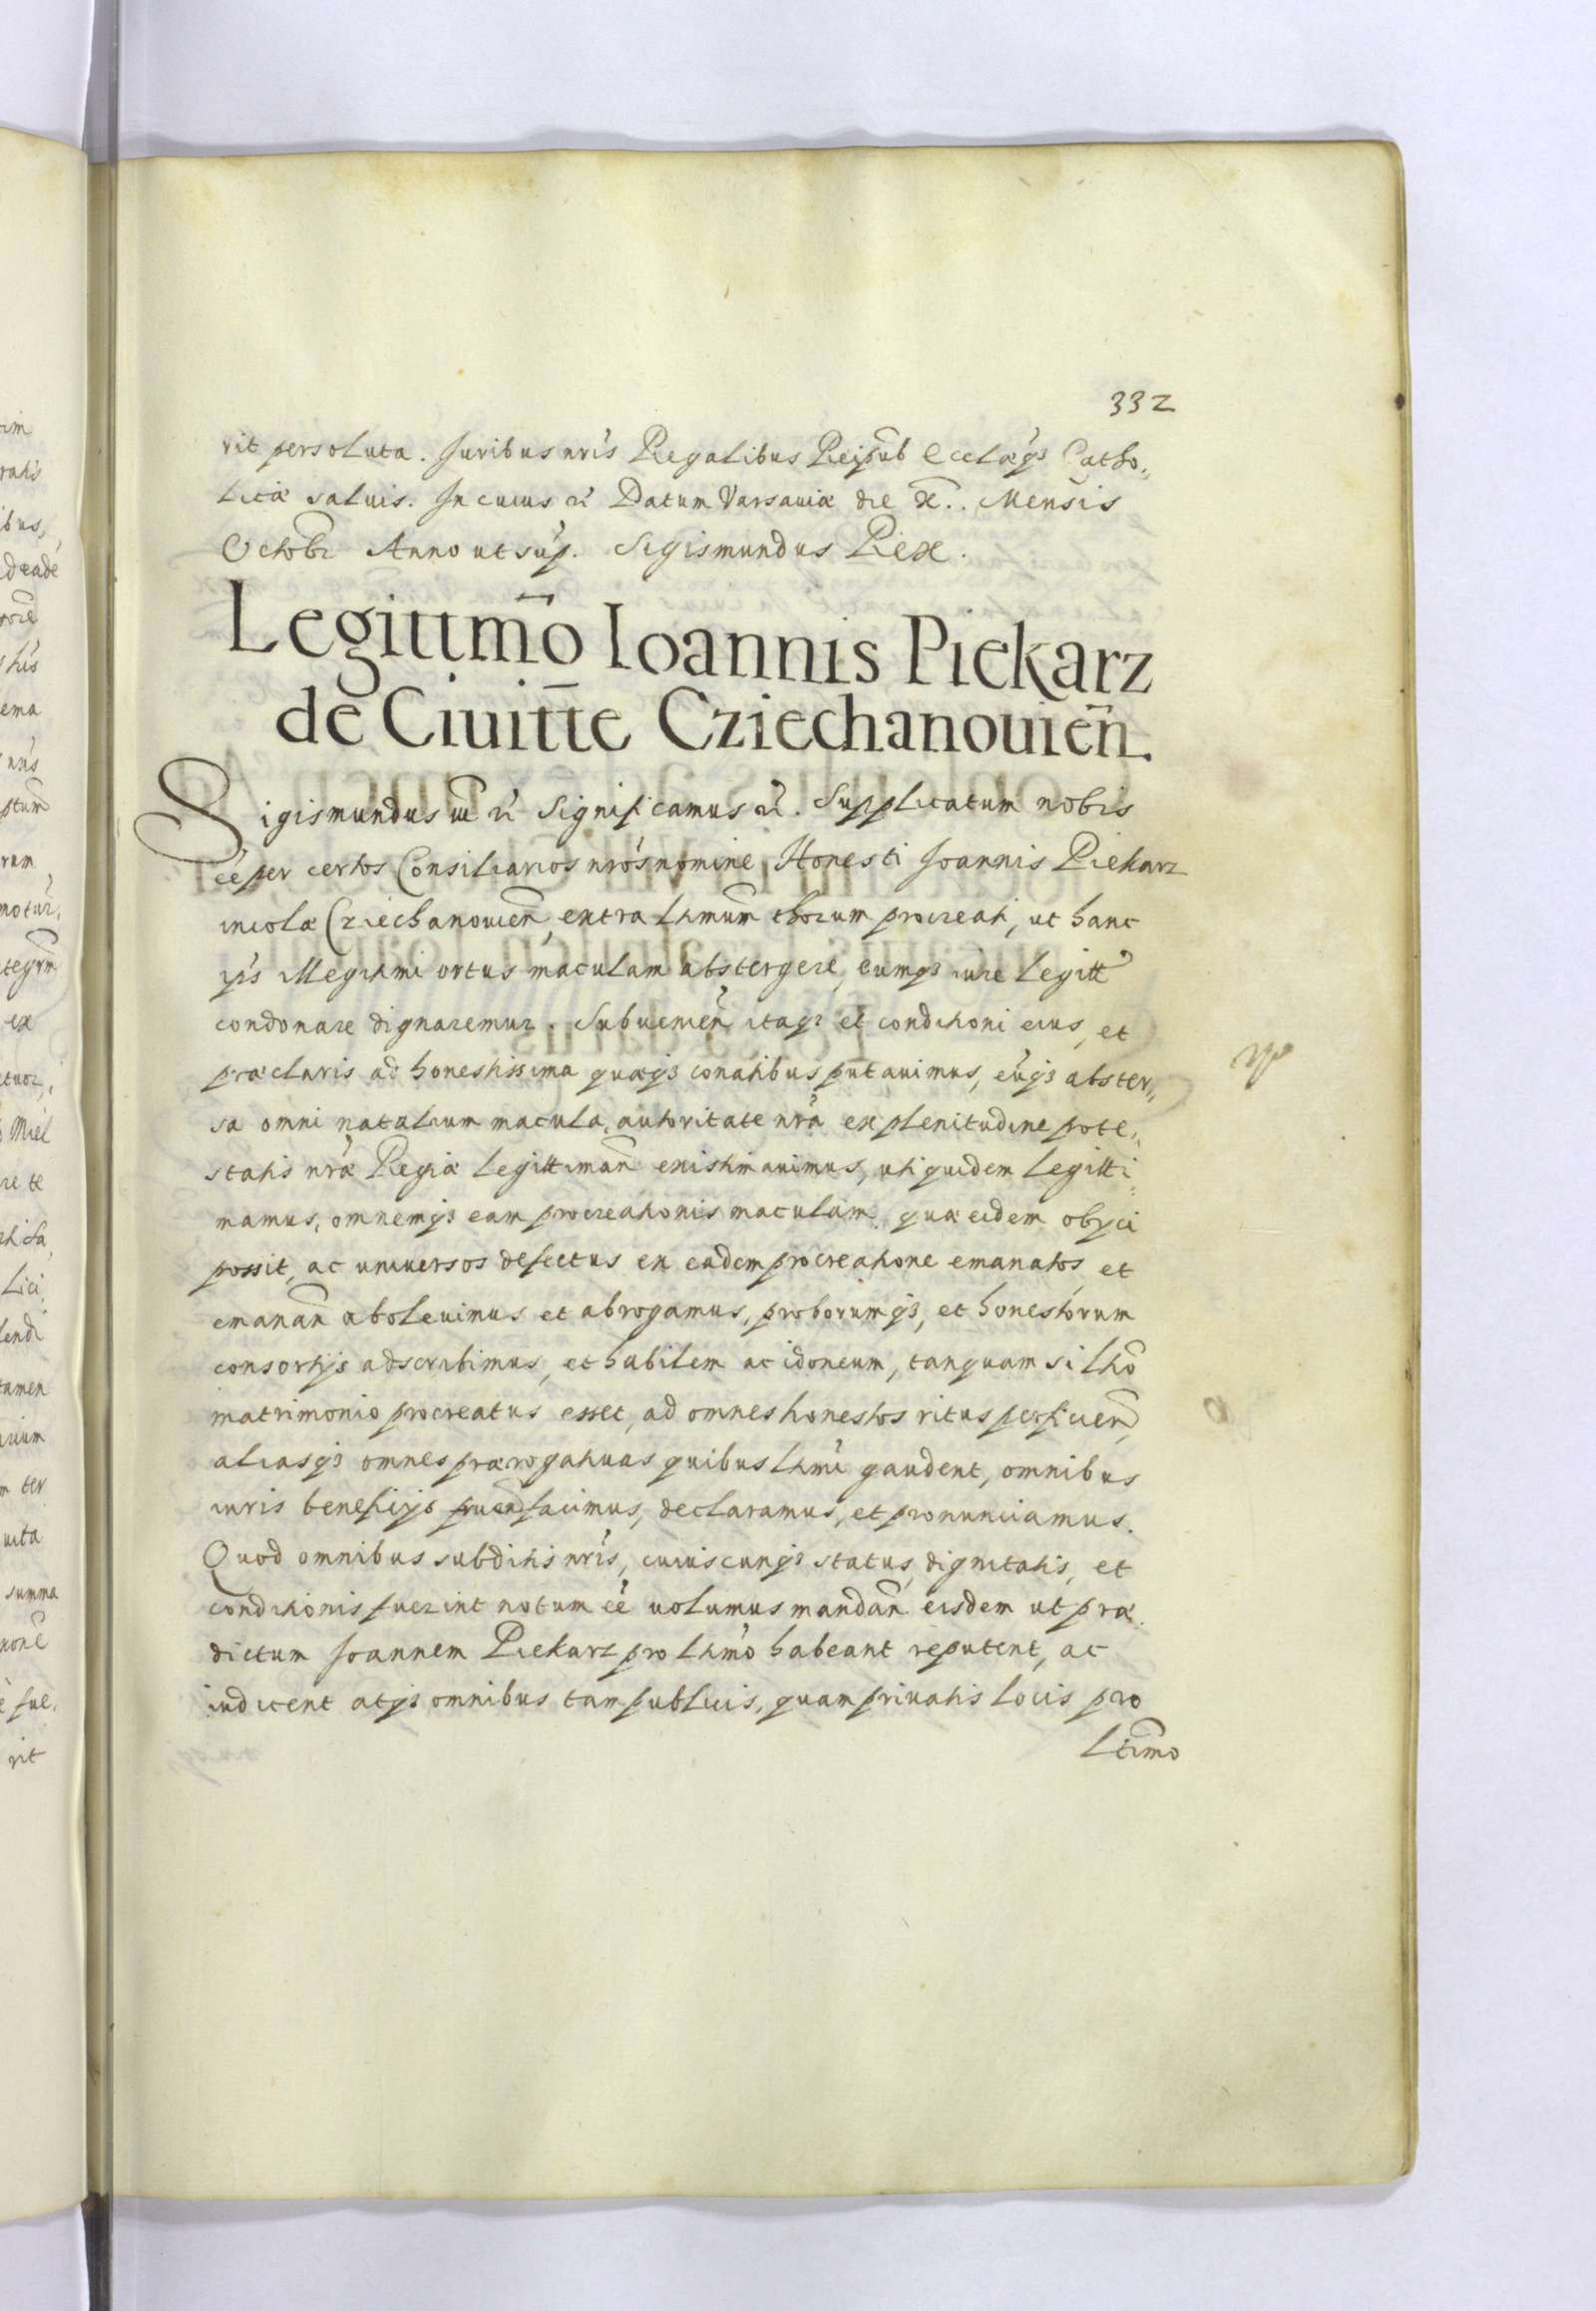 332
rit persoluta. Iuribus nr̃is Regalibus Reipub Ecclæq3 Catho„
licæ saluis. In cuius rẽi Datum Varsauiæ die X.. Mensis
Octobr̃ Anno ut sup̃. Sigismundus Rex.
Legittim̃o Ioannis Piekarz
de Ciuitt̃e Cziechanouien̄.
Sigismundus III rẽi Significamus rẽi. Supplicatum nobis
eẽ per certos Consiliarios nr̃os nomine Honesti Ioannis Piekarz
incolæ Cziechanouien̄, extra lt̃imum thorum procreati, ut hanc
ip̃s illegitimi ortus maculam abstergere, eumq3 iure legitt̃
condonare dignaremur. Subuenien̄ itaq3 et conditioni eius, et
præclaris ad honestissima quæq3 conatibus putauimus, eũq3 abster„
sa omni natalium macula, autoritate nr̃a ex plenitudine pote„
statis nr̃æ Regiæ legittiman̄ existimauimus, uti quidem legitti„
mamus, omnemq3 eam procreationis maculam, quæ eidem obijci
possit, ac uniuersos defectus ex eadem procreatione emanatos, et
emanan̄ aboleuimus et abrogamus, proborumq3, et honestorum
consortijs adscribimus, et habilem ac idoneum, tanquam si lt̃io
matrimonio procreatus esset, ad omnes honestos ritus perficien̄,
aliasq3 omnes prærogatiuas quibus lt̃imi gaudent, omnibus
iuris beneficijs fruend̃ facimus, declaramus, et pronunciamus.
Quod omnibus subditis nr̃is, cuiuscunq3 status, dignitatis, et
conditionis fuerint notum eẽ uolumus mandan̄ eisdem ut præ„
dictum Ioannem Piekarz pro lt̃imo habeant reputent, ac
iudicent atq3 omnibus tam publicis, quam priuatis locis pro
lt̃imo